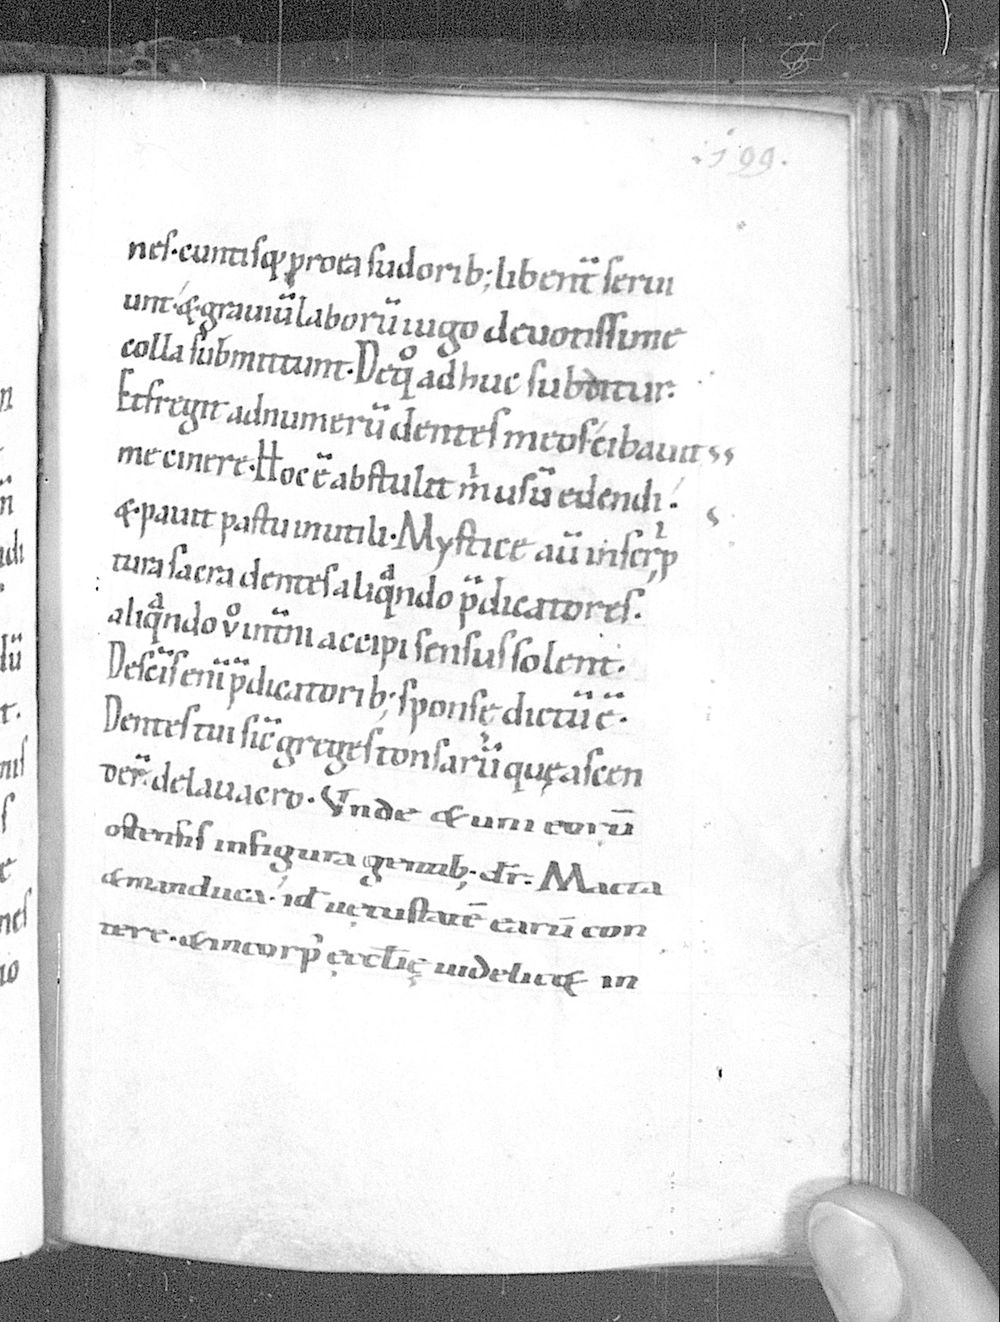 .199.
neſ· cuntiſq; pro ea ſudorib; libent̄ ſerui
unt· & grauiū laborū iugo deuotiſſime
colla ſubmittunt. De qͦ adhuc ſubditur.
Et fregit ad numerū denteſ meoſ· cibauit
me cinere. Hoc ē abſtulit m̍ uſū edendi·
& pauit paſtu inutili. Myſtice aū in ſcrip
tura ſacra denteſ aliqͣndo p̄dicatoreſ·
aliqͣndo vͦ int̄ni accipi ſenſus ſolent.
De ſc̄iſ eni p̄dicatorib; ſponſę dictū ē.
Denteſ tui ſic̄ gregeſ tonſarū quę aſcen
der̄ de lauacro. Vnde & uni eorū
oſtenſiſ in figura gentib; dr̄. Macta
& manduca· id ÷ uetuſtatē earū con
tere· & in corp̍ ęccl̄ię uidelic& in